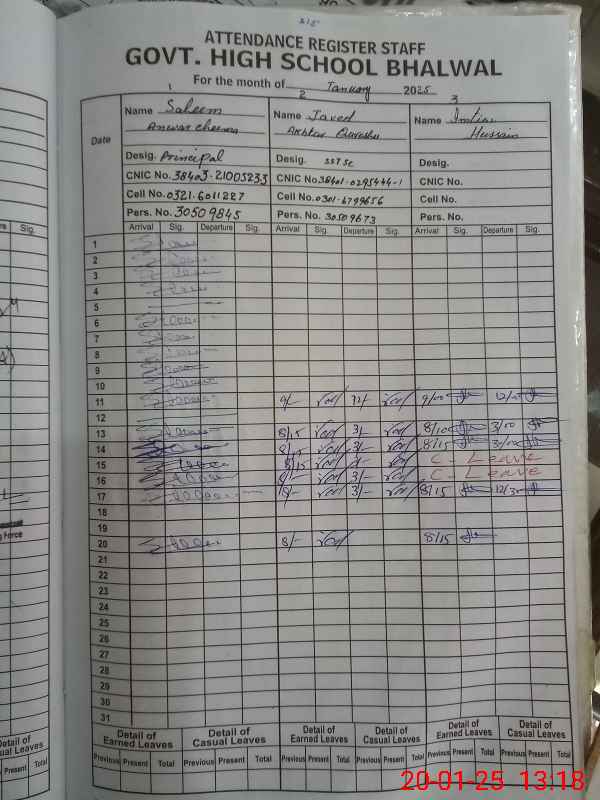 ATTENDANCE REGISTER STAFF
GOVT. HIGH SCHOOL BHALWAL
For the month of January 2025
1 2 3
Date
Name Saleem Name Javed Name Imtiaz
Anwar Cheema Akhtar Hussain
Desig. Principal Desig. SST SC Desig.
CNIC No. 38403-21005233 CNIC No. 38401-0295444-1 CNIC No.
Cell No. 0321-6011227 Cell No. 0301-6799656 Cell No.
Pers. No. 30509845 Pers. No. 30509673 Pers. No.
Arrival Sig. Departure Sig. Arrival Sig. Departure Sig. Arrival Sig. Departure Sig.
1
2
3
4
5
6
7
8
9
10
11 9/- 12/- 9/00 12/00
12
13 8/15 3/- 8/10 3/10
14 8/15 3/- 8/15 3/00
15 8/15 C. Leave
16 8/- 3/- C. Leave
17 8/- 3/- 8/15 12/30
18
19
20 8/- 8/15
21
22
23
24
25
26
27
28
29
30
31
Detail of Earned Leaves Detail of Casual Leaves Detail of Earned Leaves Detail of Casual Leaves Detail of Earned Leaves Detail of Casual Leaves
Previous Present Total Previous Present Total Previous Present Total Previous Present Total Previous Present Total Previous Present Total
Sig.
Force
Detail of
Casual Leaves
Present Total
20-01-25 13:18